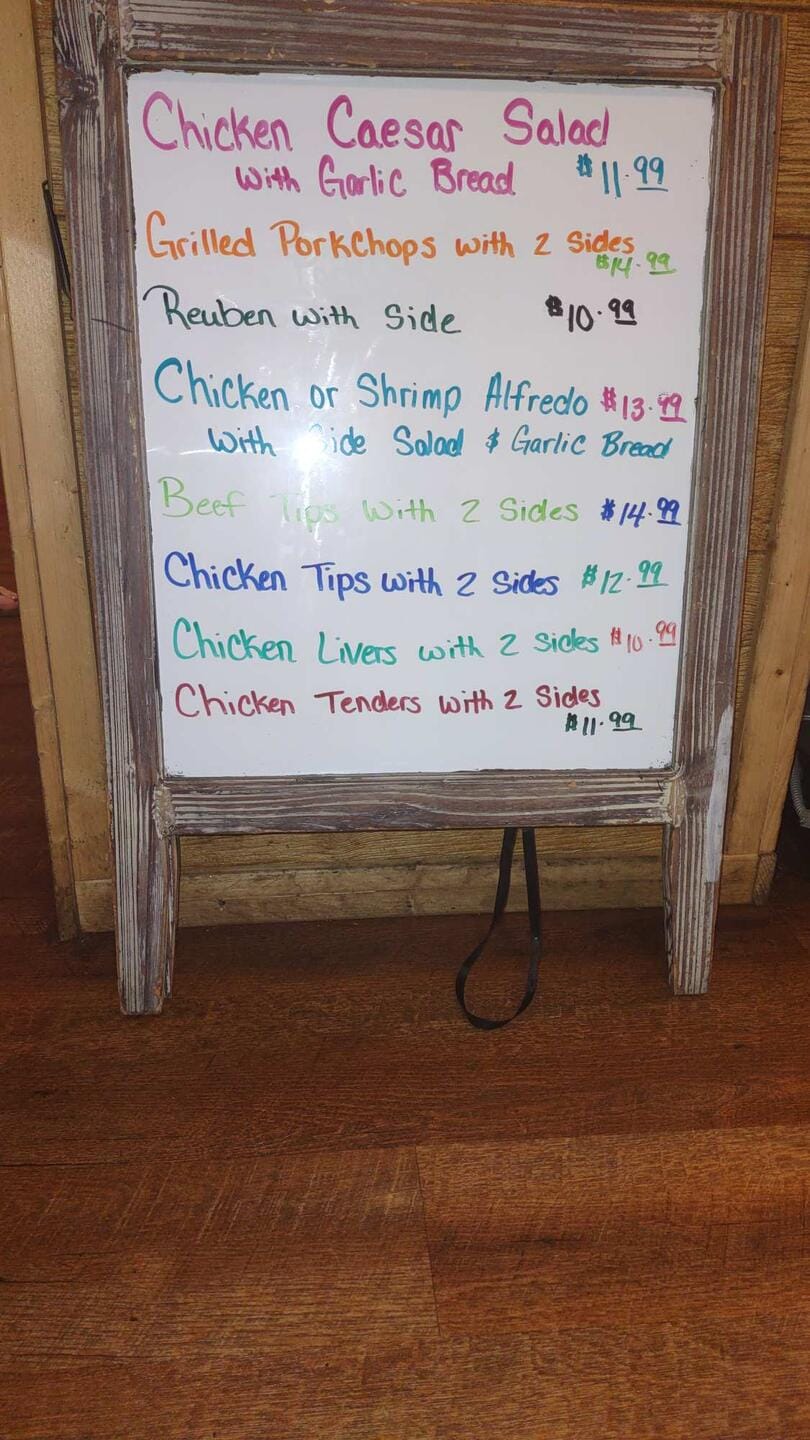 Chicken Caesar Salad
with Garlic Bread $11.99
Grilled PorkChops with 2 Sides
$14.99
Reuben with Side $10.99
Chicken or Shrimp Alfredo $13.99
with Side Salad & Garlic Bread
Beef Tips with 2 Sides $14.99
Chicken Tips with 2 Sides $12.99
Chicken Livers with 2 Sides $10.99
Chicken Tenders with 2 Sides
$11.99